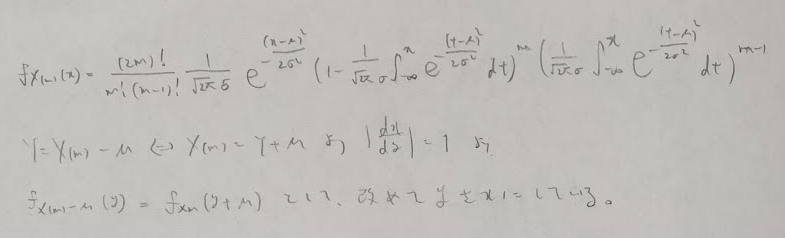 f_{X_{(m)}}(x) = \frac{(2m)!}{m!(m-1)!} \frac{1}{\sqrt{2π}σ} e^{-\frac{(x-μ)^2}{2σ^2}} (1 - \frac{1}{\sqrt{2π}σ} ∫_{-∞}^{x} e^{-\frac{(t-μ)^2}{2σ^2}} dt)^m (\frac{1}{\sqrt{2π}σ} ∫_{-∞}^{x} e^{-\frac{(t-μ)^2}{2σ^2}} dt)^{m-1}
Y = X_{(m)} - μ ⇔ X_{(m)} = Y + μ より |\frac{dx}{dy}| = 1 より
f_{X_{(m)}-μ}(y) = f_{Xm}(y+μ) として、改めて y を x にしている。